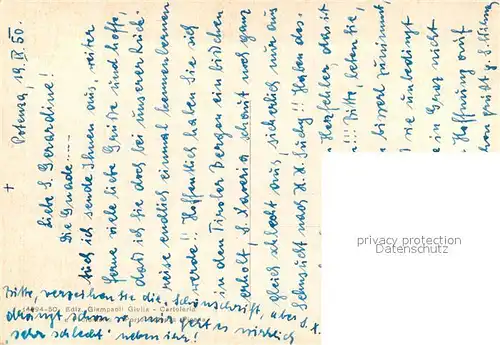 Potenza, 19. IX. 50.
†
Liebe S. Gerardine!
Die Gnade.....
Auch ich sende Ihnen aus weiter
Ferne viele liebe Grüße und hoffe,
daß ich Sie doch bei unserer Rück-
reise endlich einmal kennenlernen
werde!! Hoffentlich haben Sie sich
in den Tiroler Bergen ein bißchen
erholt, S. Xaveria schaut noch ganz
gleich schlecht aus, sicherlich nur aus
Sehnsucht nach H. H. Suchy!! Haben das
Herzfehler, das ist
!!! Bitte, beten Sie,
bisserl zunimmt,
sie unbedingt
in Graz nicht
Hoffnung auf
grüßt
Bitte, verzeihen Sie die Schönschrift, aber S. X.
drängt schon so, mir geht es wirklich
"sehr schlecht" neben ihr!
Ediz. Giampaoli Giulia - Cartoleria
privacy protection
DatenSchutz
www.ansichtskarten-center.de